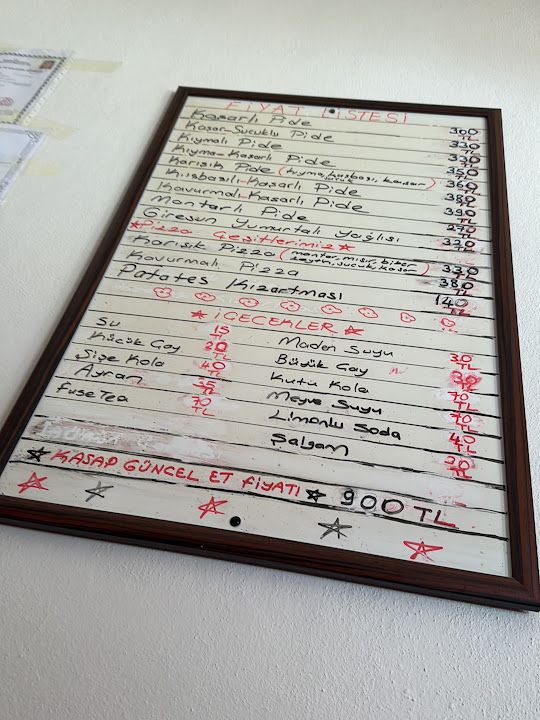 FİYAT LİSTESİ
Kaşarlı Pide 300 TL
Kaşar-Sucuklu Pide 330 TL
Kıymalı Pide 330 TL
Kıyma-Kaşarlı Pide 350 TL
Karışık Pide (kıyma, kuşbaşı, kaşar sucuk) 360 TL
Kuşbaşılı-Kaşarlı Pide 380 TL
Kavurmalı-Kaşarlı Pide 390 TL
Mantarlı Pide 270 TL
Giresun Yumurtalı Yağlısı 320 TL
Pizza Çeşitlerimiz
Karışık Pizza (mantar, mısır, biber zeytin, sucuk, kaşar) 330 TL
Kavurmalı Pizza 380 TL
Patates Kızartması 140 TL
İÇECEKLER
Su 15 TL Maden Suyu 30 TL
Küçük Çay 20 TL Büyük Çay 30 TL
Şişe Kola 40 TL Kutu Kola 70 TL
Ayran 35 TL Meyve Suyu 70 TL
FuseTea 70 TL Limonlu Soda 40 TL
Şalgam 30 TL
KASAP GÜNCEL ET FİYATI 900 TL